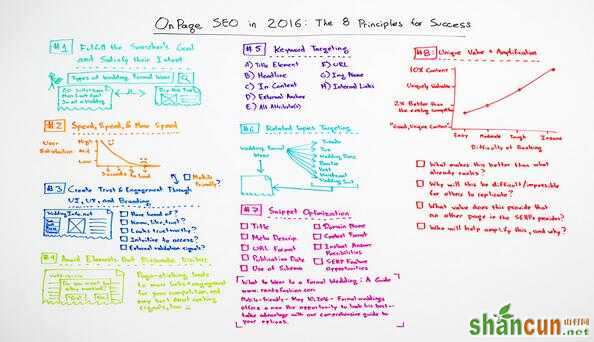 OnPage SEO in 2016: The 8 Principles for Success
#1 Fulfill the Searcher's Goal
and Satisfy their Intent
Types of Wedding Formal Wear
#2 Speed, Speed, & More Speed
User
Satisfaction
High
Mid
Low
Mobile
Friendly?
#3 Create Trust & Engagement Through
UI, UX, and Branding
WeddingInfo.net
Have heard of?
Know, like, trust?
Looks trustworthy?
Intuitive to access?
External validation signals?
#4 Avoid Elements that Dissuade Visitors
#5 Keyword Targeting
A) Title Element
B) Headline
C) In Content
D) External Anchor
E) Alt Attribute(s)
F) URL
G) Img Name
H) Internal Links
#6 Related Topics Targeting
Wedding Formal
Wear
Tuxedo
Tie
#7 Snippet Optimization
Title
Meta Descrip.
URL Format
Publication Date
Use of Schema
Domain Name
Content Format
Instant Answer
Possibilities
SERP Feature
Opportunities
What to Wear to a Formal Wedding: A Guide
Mobile-friendly - May 10, 2016 - Formal weddings
offer a man the opportunity to look his best -
take advantage with our comprehensive guide to
your options.
#8: Unique Value + Amplification
10X Content
Uniquely Valuable
2X Better than
the existing competitors
"Good, Unique Content"
Easy
Moderate
Tough
Insane
Difficulty of Ranking
What makes this better than what
already ranks?
Why will this be difficult/impossible
for others to replicate?
What value does this provide that
no other page in the SERPs provides?
Who will help amplify this, and why?
shancun
山村网
.net